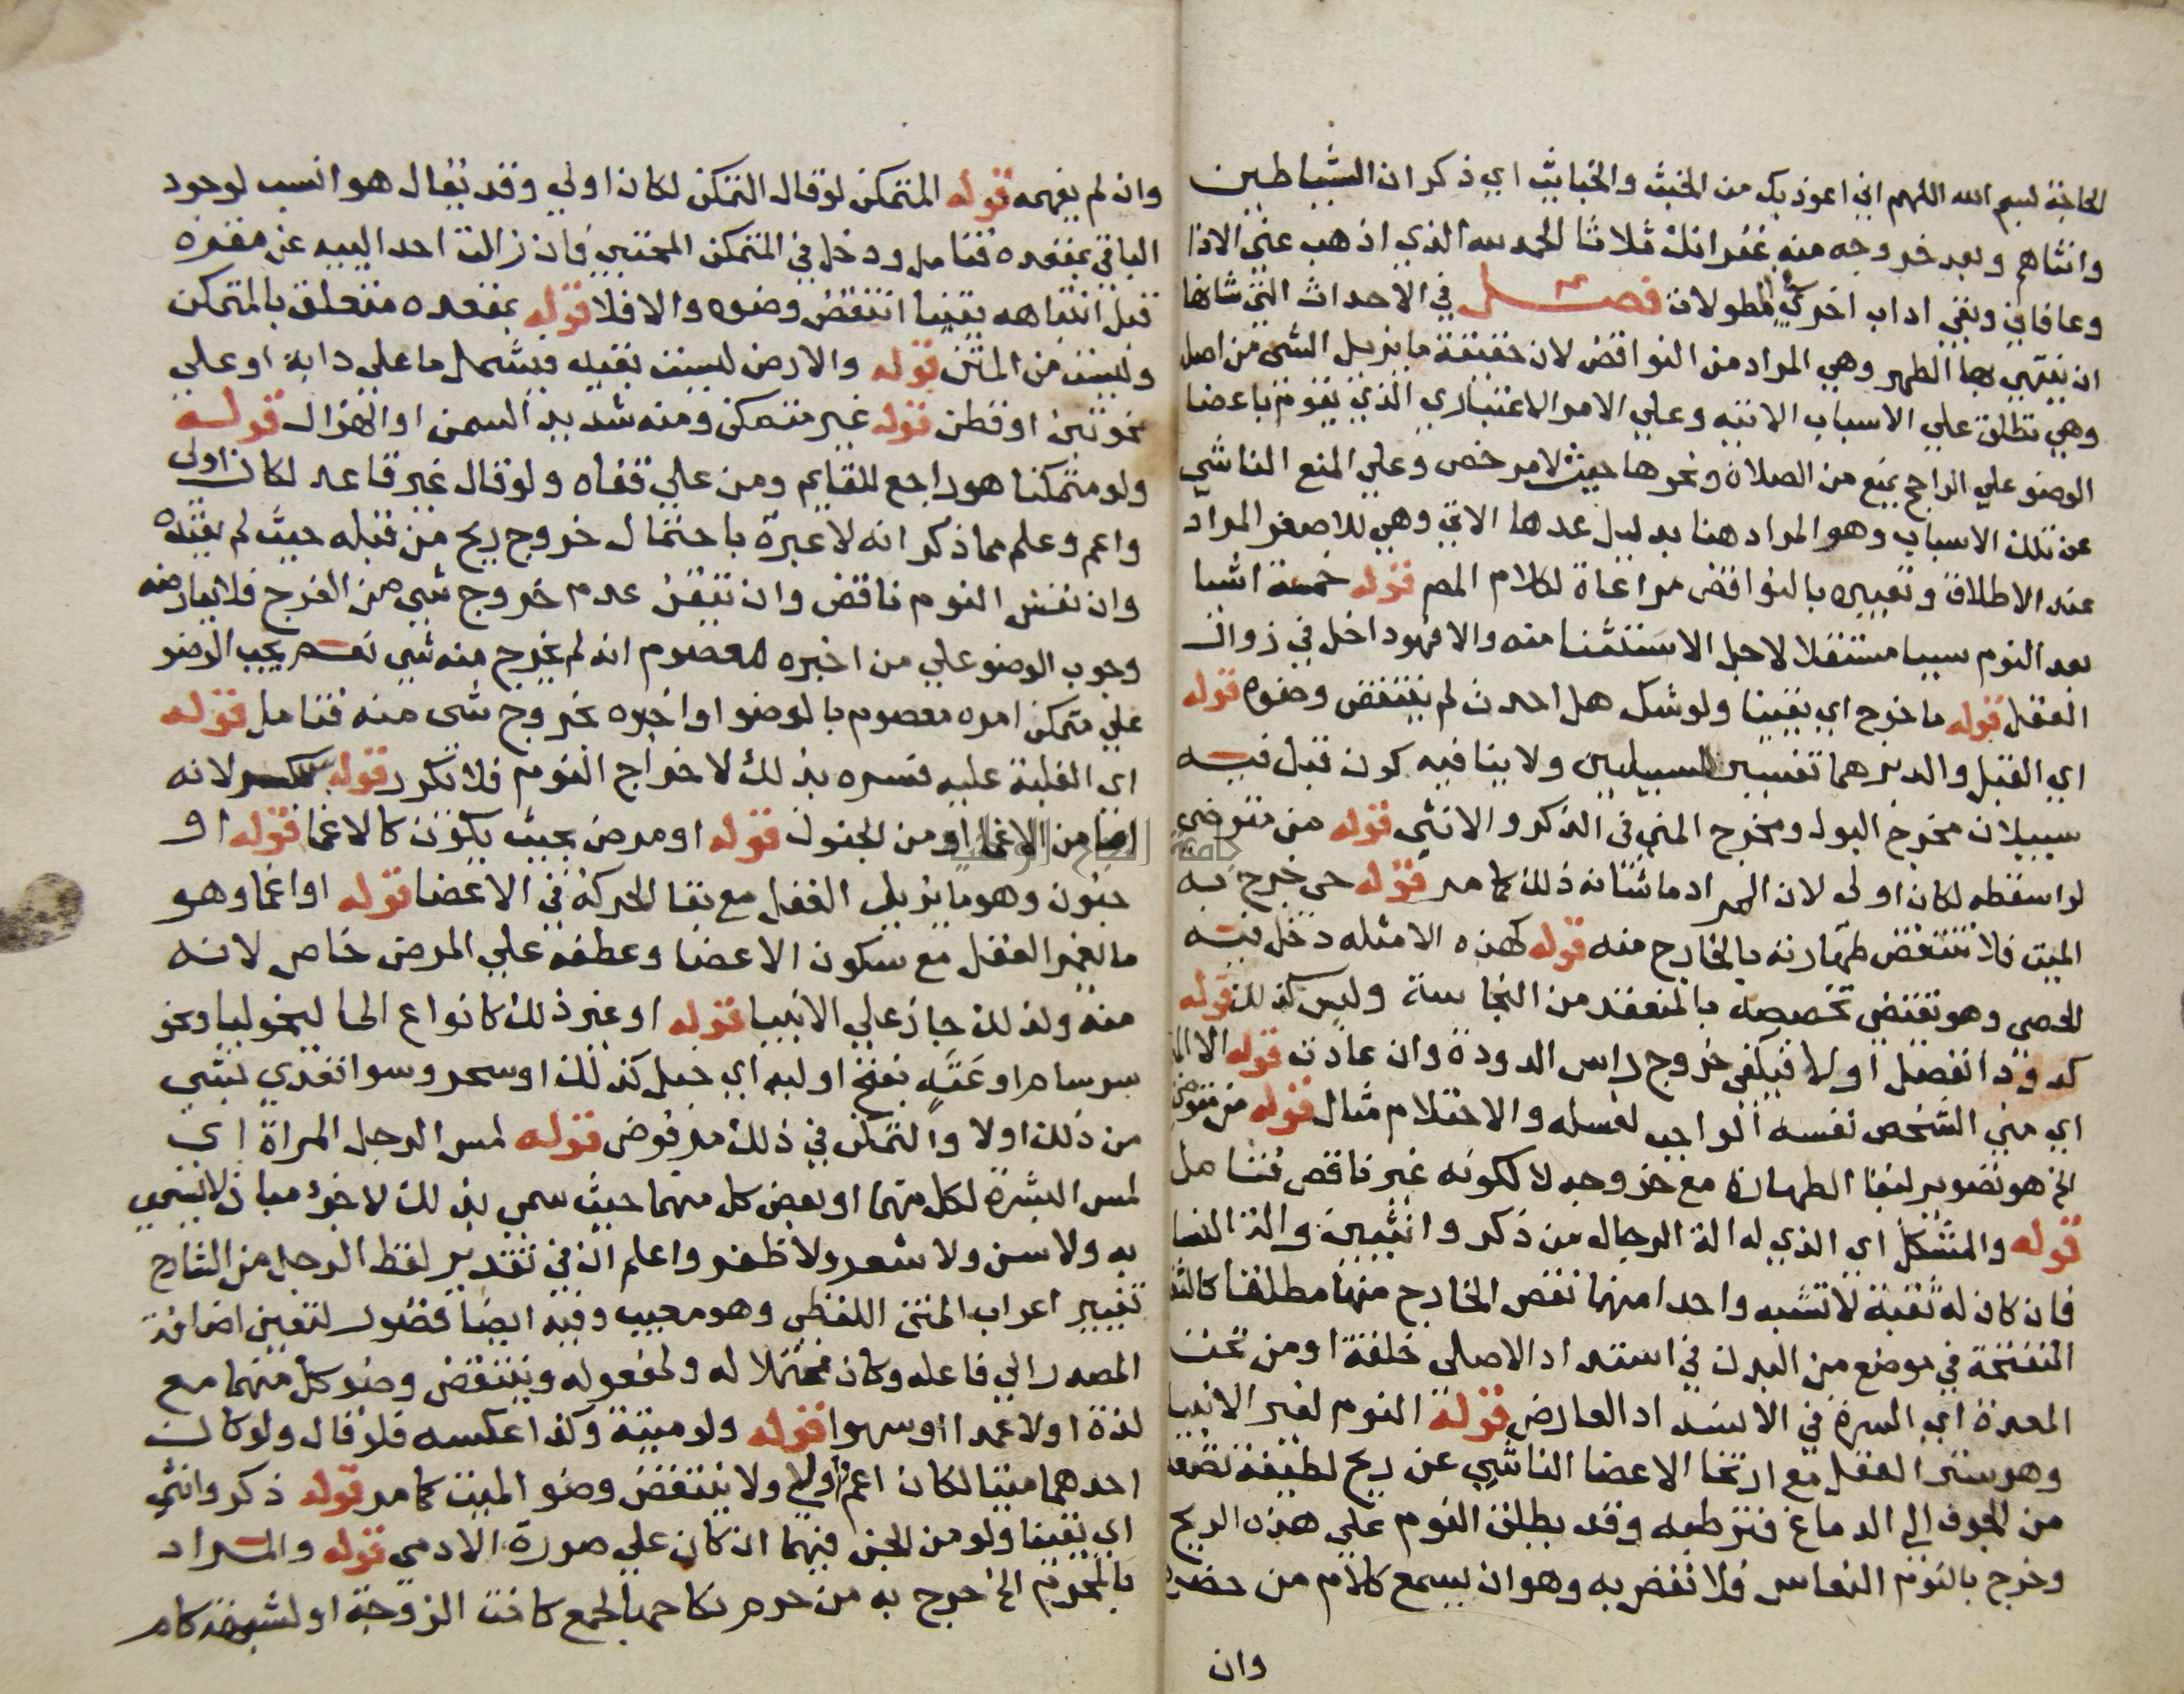 الحاجة بسم الله اللهم اني اعوذ بك من الخبث والخبايث اي ذكران الشياطين
واناثهم وبعد خروجه منه غفرانك ثلاثا الحمد لله الذي اذهب عني الاذا
وعافاني وبقي اداب اخر في المطولات فصل في الاحداث التي شانها
ان ينتهي بها الطهر وهي المراد من النواقض لان حقيقة ما يزيل الشي من اصل
وهي تطلق علي الاسباب الاتيه وعلي الامر الاعتباري الذي يقوم باعضا
الوضو علي الراجح يمنع من الصلاة ونحوها حيث لا مرخص وعلي المنع الناشي
عن تلك الاسباب وهو المراد هنا بدليل عدها الاتي وهي للاصغر المراد
عند الاطلاق وتعبيره بالنواقض مراعاة لكلام المص قوله خمسة اشيا
بعد النوم سببا مستقلا لاجل الاستثنا منه والا فهو داخل في زوال
العقل قوله ما خرج اي يقينا ولو شك هل احدث لم ينتقض وضوه قوله
اي القبل والدبر هما تفسير للسبيلين ولا ينافيه كون قبل فيه
سبيلان مخرج البول ومخرج المني في الذكر والانثي قوله من متوضي
لو اسقطه لكان اولي لان المراد ما شانه ذلك كما مر قوله حي خرج به
الميت فلا تنتقض طهارته بالخارج منه قوله كهذه الامثله دخل فيه
الحصي وهو تقتضي تخصيصه بالمنعقد من النجاسة وليس كذلك قوله
كدود انفصل اولا فيكفي خروج راس الدودة وان عادت قوله الا الم
اي مني الشخص نفسه الواجب لغسله والاحتلام مثال قوله من متوض
الخ هو تصوير لبقا الطهارة مع خروجه لا لكونه غير ناقض فتامل
قوله والمشكل اي الذي له الة الرجال من ذكر وانثيين والة النسا
فان كان له ثقبة لا تشبه واحدا منهما نقض الخارج منها مطلقا كالثق
المنفتحة في موضع من البدن في استداد الاصلي خلقة او من تحت
المعدة اي السرة في الانسداد العارض قوله النوم لغير الانبيا
وهو ستر العقل مع ارتخا الاعضا الناشي عن ريح لطيفة تصعد
من الجوف الي الدماغ فترطبه وقد يطلق النوم علي هذه الريح
وخرج بالنوم النعاس فلا نقض به وهو ان يسمع كلام من حضره
وان
وان لم يفهمه قوله المتمكن لو قال التمكن لكان اولي وقد يقال هو انسب لوجود
الباقي بمقعده فتامل ودخل في المتمكن المحتبي فان زالت احد اليبيه عن مقره
قبل انتباهه يقينا انتقض وضوه والا فلا قوله بمقعده متعلق بالمتمكن
وليست من المتن قوله والارض ليست بقيد فيشمل ما علي دابة او علي
نحو تبن او قطن قوله غير متمكن ومنه شديد السمن او الهزال قوله
ولو متمكنا هو راجع للقايم ومن علي قفاه ولو قال غير قاعد لكان اولي
واعم وعلم مما ذكر انه لا عبرة باحتمال خروج ريح من قبله حيث لم يعتده
وان نفس النوم ناقض وان تيقن عدم خروج شي من الفرج فلا يعارضه
وجوب الوضو علي من اخبره المعصوم انه لم يخرج منه شي نعم يجب الوضو
علي متمكن امره معصوم بالوضو او اخبره بخروج شي منه فتامل قوله
اي الغلبة عليه فسره بذلك لاخراج النوم فلا تكرر قوله بسكر لانه
اما من الاغما او من الجنون قوله او مرض بحيث يكون كالاغما قوله او
جنون وهو ما يزيل العقل مع بقا الحركة في الاعضا قوله او اغما وهو
ما يغمر العقل مع سكون الاعضا وعطفه علي المرض خاص لانه
منه ولذلك جاز علي الانبيا قوله او غير ذلك كانواع الماليخوليا ونحو
سرسام او عته بفتح اوليه اي خبل كذلك او سحر وسوا تعدي بشي
من ذلك اولا والتمكن في ذلك مرفوض قوله لمس الرجل المراة اي
لمس البشرة لكل منهما او بعض كل منهما حيث سمي بذلك لا جزء مبان لا يسمي
به ولا سن ولا شعر ولا ظفر واعلم ان في تقدير لفظ الرجل من الشارح
تغيير اعراب المتن اللفظي وهو معيب وفيه ايضا قصور لتعين اضافة
المصدر الي فاعله وكان محتملا له ولمفعوله وينتقض وضو كل منهما مع
لذة اولا عمدا او سهوا قوله ولو ميتة وكذا عكسه فلو قال ولو كان
احدهما ميتا لكان اعم واولي ولا ينتقض وضو الميت كما مر قوله ذكر وانثي
اي يقينا ولو من الجن فيهما ان كان علي صورة الادمي قوله والمراد
بالمحرم الخ خرج به من حرم نكاحها لجمع كاخت الزوجة او لشبهة كام